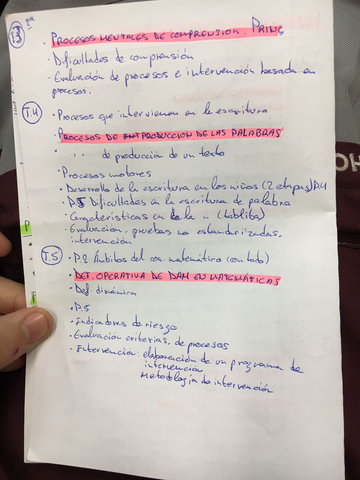 T.3
· PROCESOS MENTALES DE COMPRENSIÓN PRING
· Dificultades de comprensión
· Evaluación de procesos e intervención basada en
procesos.
T.4
· Procesos que intervienen en la escritura
· PROCESOS DE INTPRODUCCION DE LAS PALABRAS
· " " de producción de un texto
· Procesos motores
· Desarrollo de la escritura en los niños (2 etapas) P.4
· P.5 Dificultades a la escritura de palabra
· Características en de la " (tablita)
· Evaluacion, pruebas no estandarizadas,
intervención
T.5
· P.2 Ámbitos del con matemático (con todo)
· DEF. OPERATIVA DE DAM EN MATEMÁTICAS
· Def. dinámica
· P.5
· Indicadores de riesgo
· Evaluación criterias, de procesos
· Intervención: elaboración de un programa de
intervención
Metodología de intervención